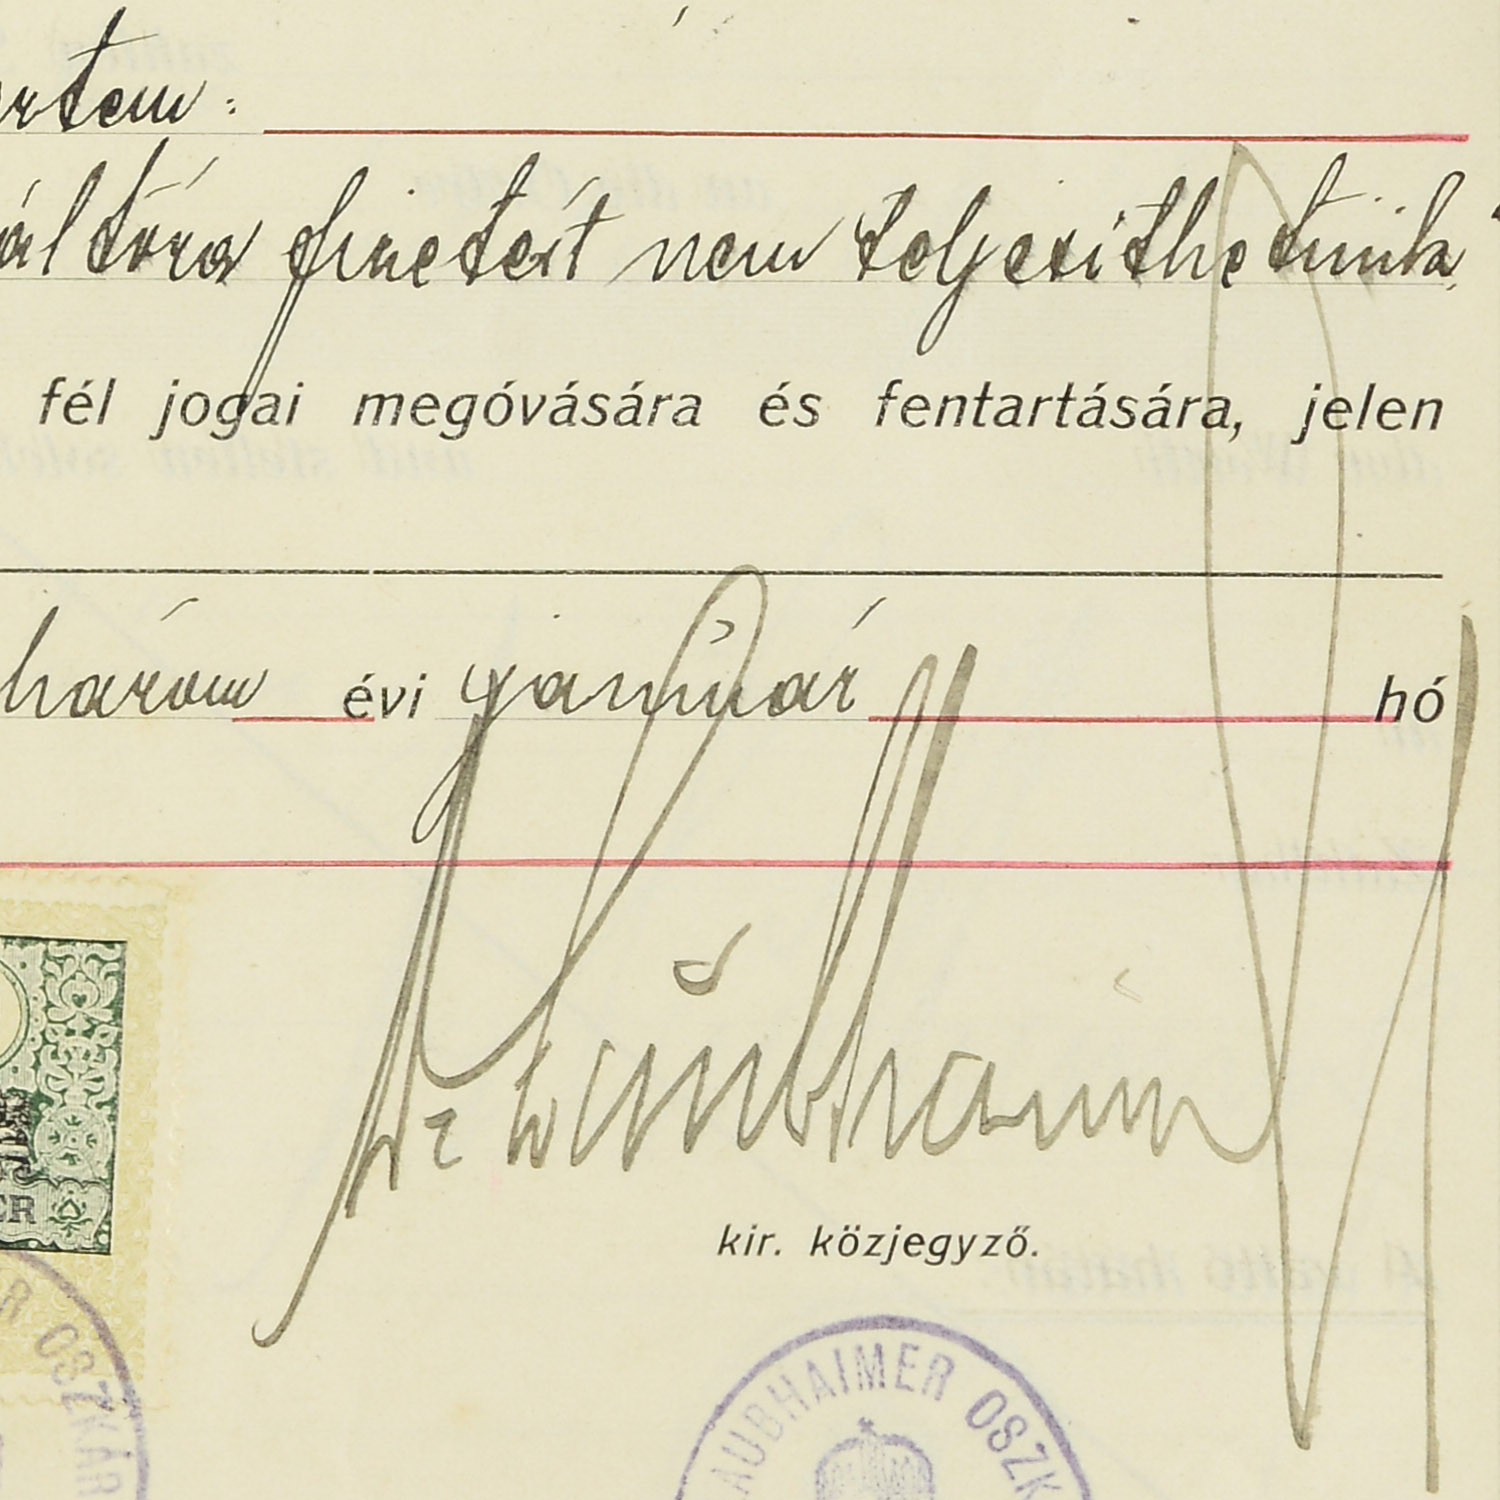 ertem:
váltóra fizetést nem teljesíthetünk"
fél jogai megóvására és fentartására, jelen
három évi január hó
Dr
kir. közjegyző.
ER
R OSZKÁR
AUBHAIMER OSZK